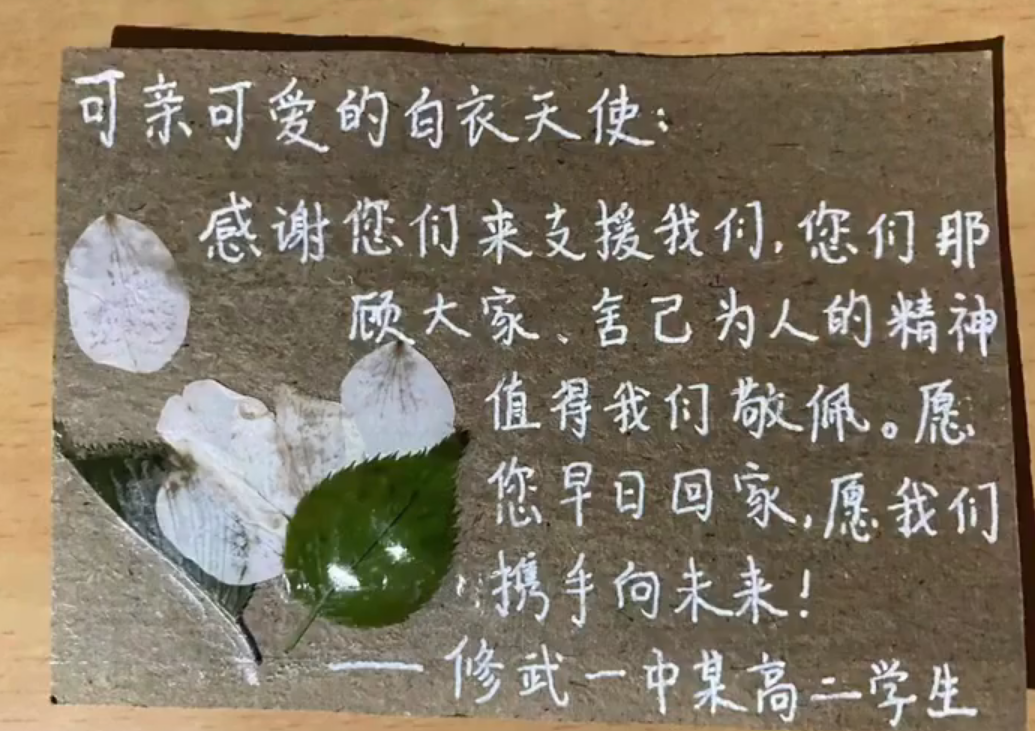 可亲可爱的白衣天使：
感谢您们来支援我们，您们那
顾大家、舍己为人的精神
值得我们敬佩。愿
您早日回家，愿我们
携手向未来！
——修武一中某高二学生